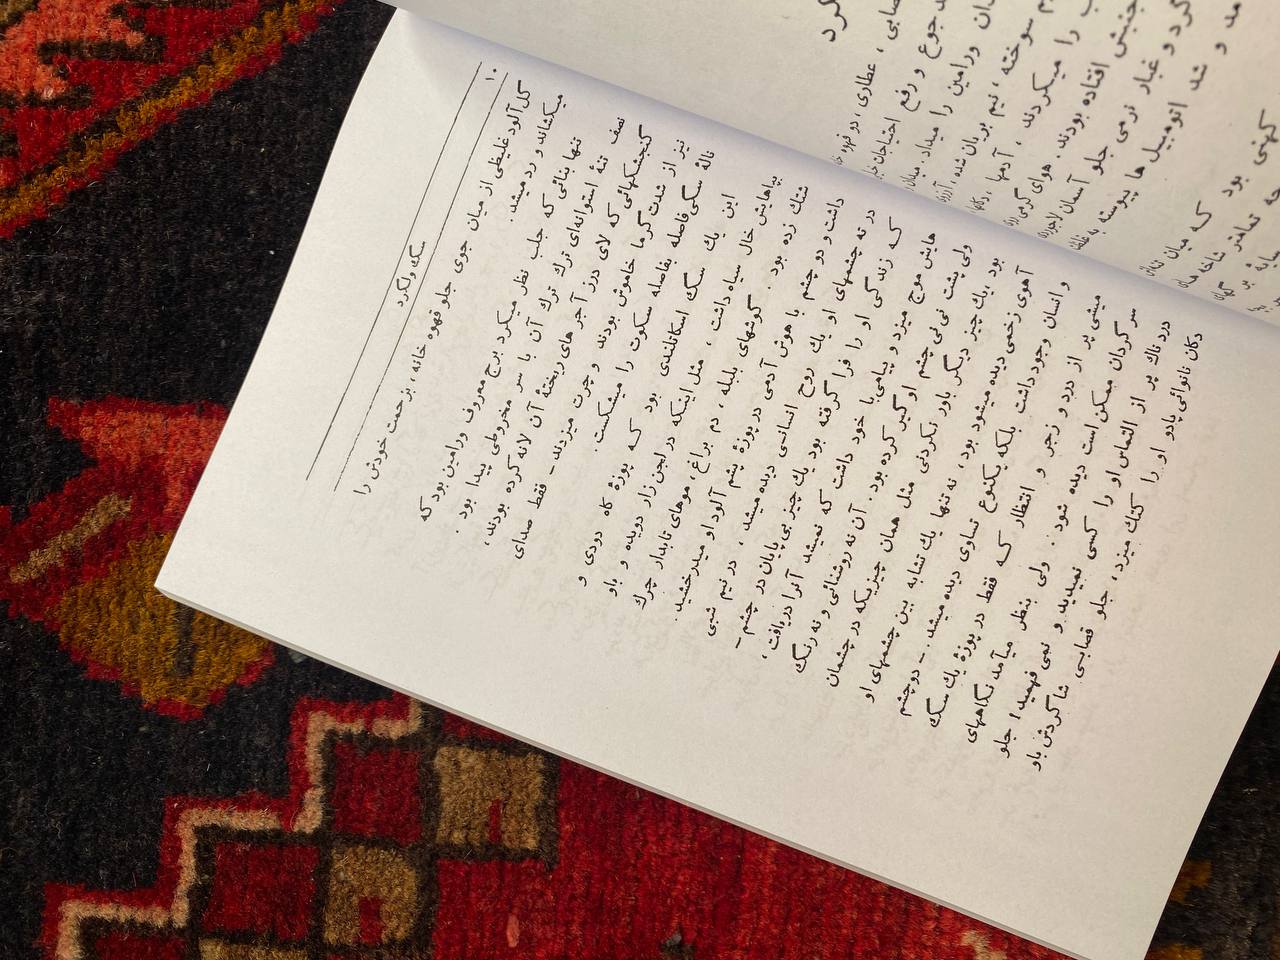 عطاری ، دو قهوه
جوع و رفع
ورامین را میداد. میدان
سوخته ، نیم بریان شده ،
را میکردند ، آدمها ،
جنبش افتاده بودند. هوای گرمی
و غبار نرمی جلو آسمان لاجوردی
مد و شد اتومبیل ها پیوسته
کهنی بود که میان
۱۰
سگ ولگرد
گل‌آلود غلیظی از میان جوی جلو قهوه خانه ، بزحمت خودش را
میکشاند و رد میشد.
تنها بنائی که جلب نظر میکرد برج معروف ورامین بود که
نصف تنهٔ استوانه‌ای ترک ترک آن با سر مخروطی پیدا بود .
گنجشکهائی که لای درز آجر های ریختهٔ آن لانه کرده بودند،
نیز از شدت گرما خاموش بودند و چرت میزدند - فقط صدای
نالهٔ سگی فاصله بفاصله سکوت را میشکست.
این یک سگ اسکاتلندی بود که پوزهٔ کاه دودی و
بپاهایش خال سیاه داشت ، مثل اینکه در لجن زار دویده و باو
شتک زده بود . گوشهای بلبله ، دم براغ ، موهای تابدار چرک
داشت و دو چشم با هوش آدمی در پوزهٔ پشم آلود او میدرخشید.
در ته چشمهای او یک روح انسانی دیده میشد ، در نیم شبی
که زندگی او را فرا گرفته بود یک چیز بی پایان در چشم-
هایش موج میزد و پیامی با خود داشت که نمیشد آنرا دریافت ،
ولی پشت نی نی چشم او گیر کرده بود. آن نه روشنائی و نه رنگ
بود، یک چیز دیگر باور نکردنی مثل همان چیزیکه در چشمان
آهوی زخمی دیده میشود بود، نه تنها یک تشابه بین چشمهای او
و انسان وجود داشت بلکه یکنوع تساوی دیده میشد.- دو چشم
میشی پر از درد و زجر و انتظار که فقط در پوزهٔ یک سگ
سرگردان ممکن است دیده شود . ولی بنظر میآمد نگاههای
دردناک پر از التماس او را کسی نمیدید و نمی فهمید ! جلو
دکان نانوائی پادو او را کتک میزد ، جلو قصابی شاگردش باو